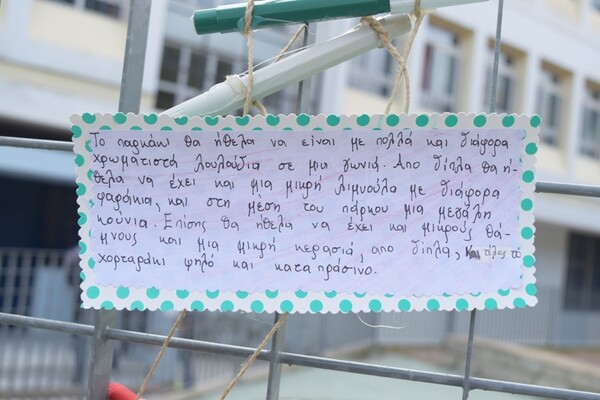 Το παρκάκι θα ήθελα να είναι με πολλά και διάφορα
χρωματιστά λουλούδια σε μια γωνιά. Απο δίπλα θα ή-
θελα να έχει και μια μικρή λιμνούλα με διάφορα
ψαράκια, και στη μέση του πάρκου μια μεγάλη
κούνια. Επίσης θα ήθελα να έχει και μικρούς θά-
μνους και μια μικρή κερασιά, απο δίπλα, και τέλος το
χορταράκι ψηλό και καταπράσινο.